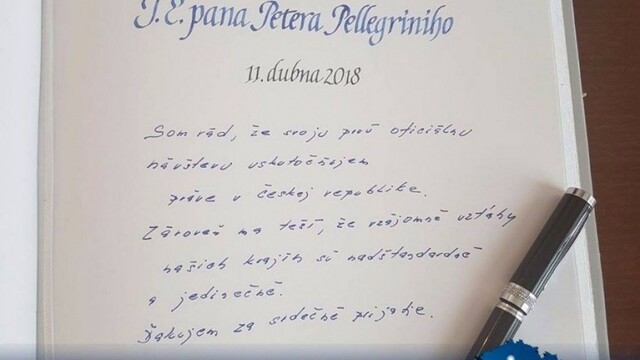 J. E. pana Petera Pellegriniho
11. dubna 2018
Som rád, že svoju prvú oficiálnu
návštevu uskutočňujem
práve v českej republike.
Zároveň ma teší, že vzájomné vzťahy
našich krajín sú nadštandardné
a jedinečné.
Ďakujem za srdečné prijatie.